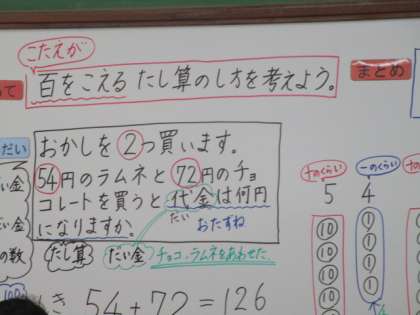 こたえが
百をこえる たし算のし方を考えよう。
まとめ
って
だい
おかしを2つ買います。
54円のラムネと72円のチョ
コレートを買うと代金は何円
だい
おたずね
になりますか。
たし算
だい金
チョコ、ラムネをあわせた
い金
い金
の数
100
き 54+72=126
十のくらい
一のくらい
5 4
10 1
10 1
10 1
10 1